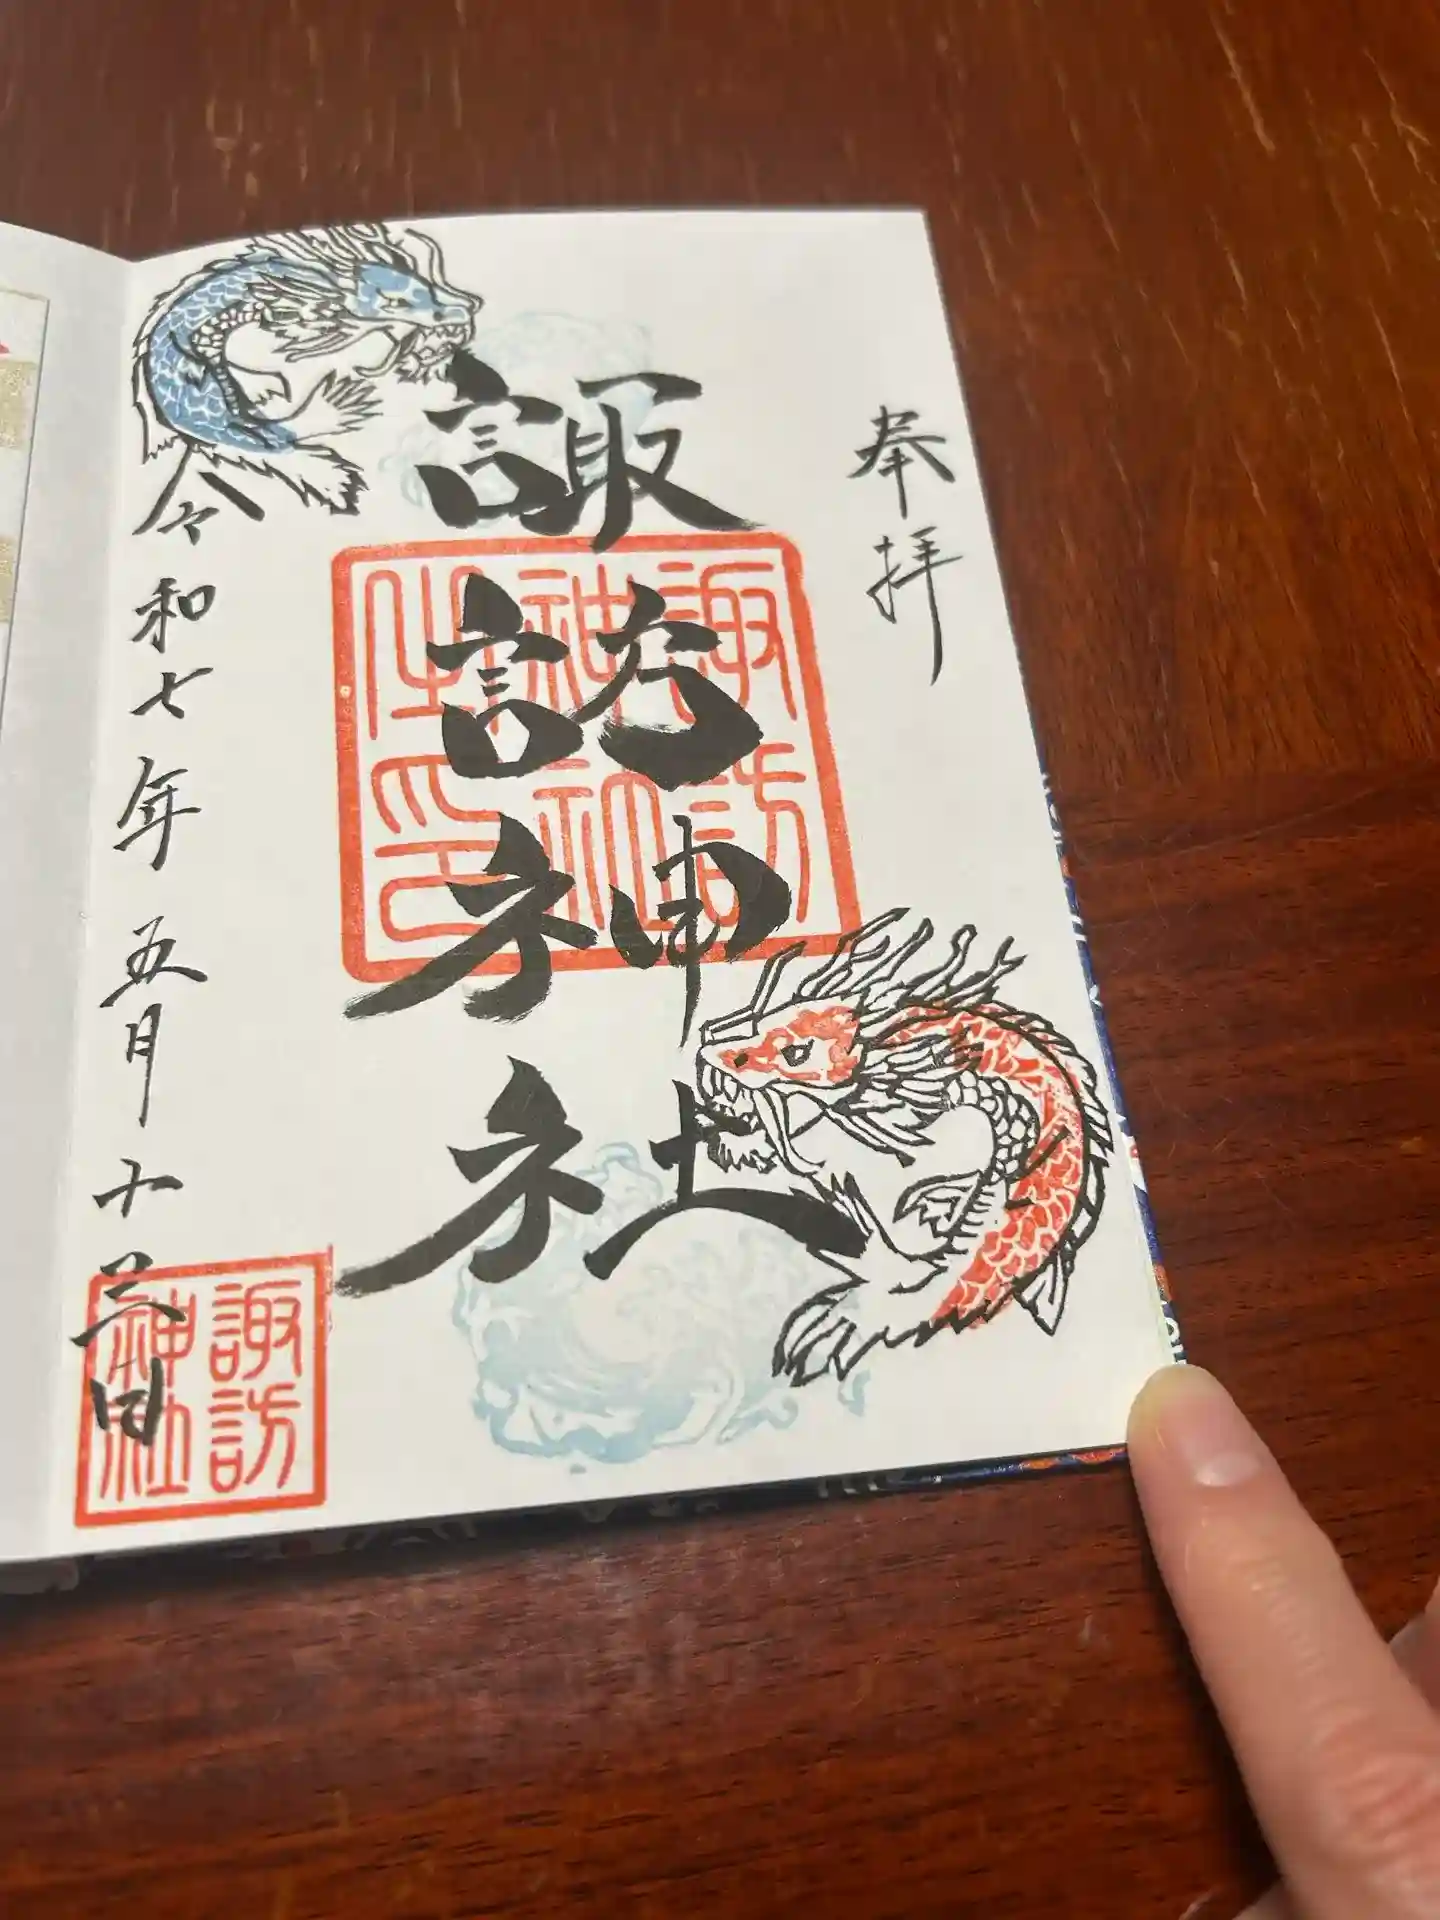 奉拝
諏訪神社
諏訪
神社
之印
令和七年五月十三日
諏訪
神社